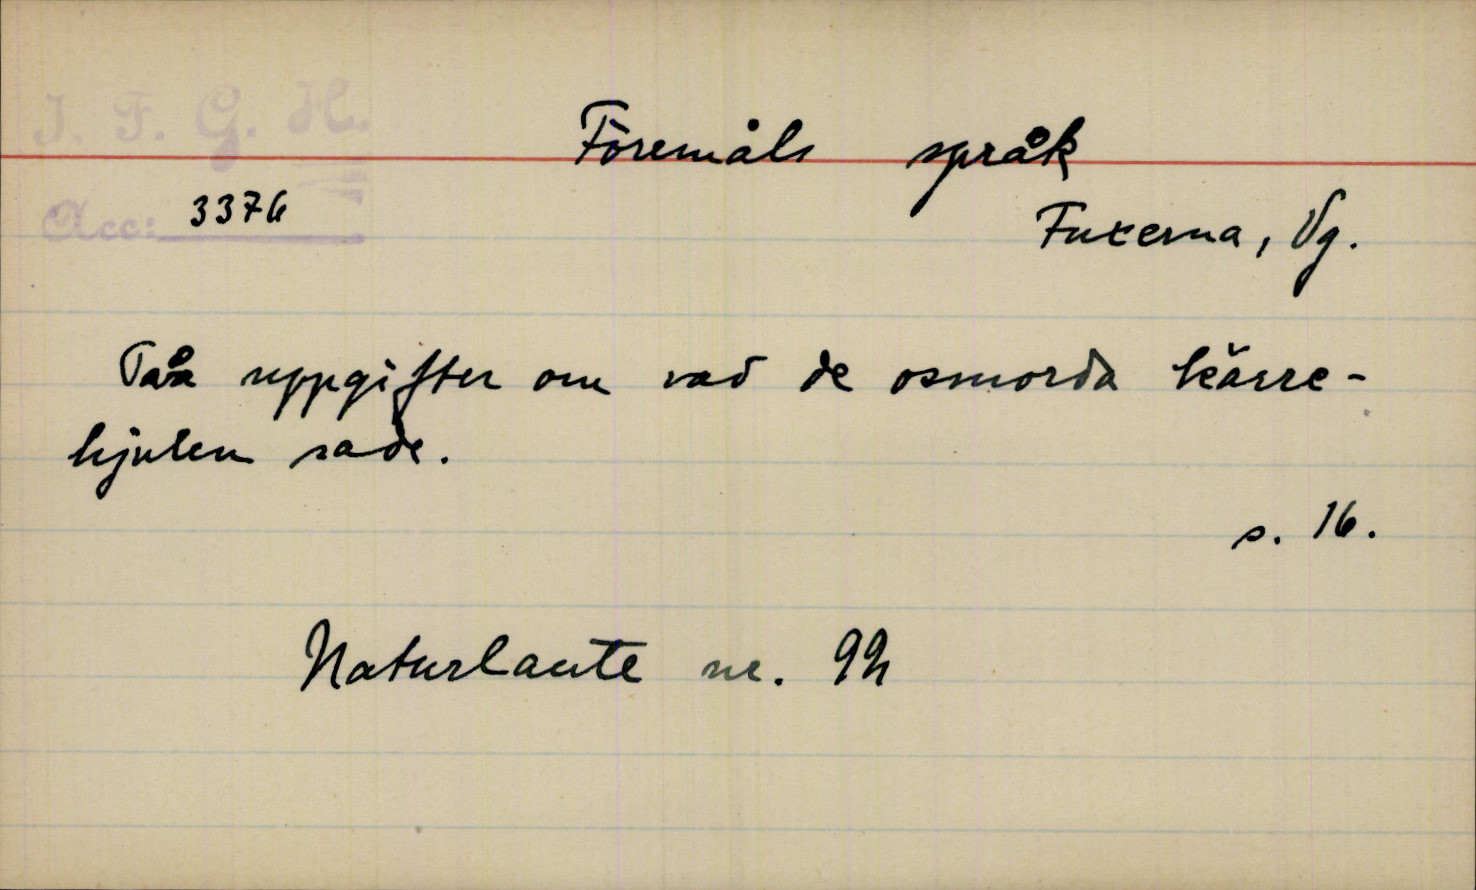 I. F. G. H.
Föremåls språk
Acc: 3376
Fuxerna, Vg.
Två uppgifter om vad de osmorda kärre-
hjulen sade.
s. 16.
Naturlaute nr. 92